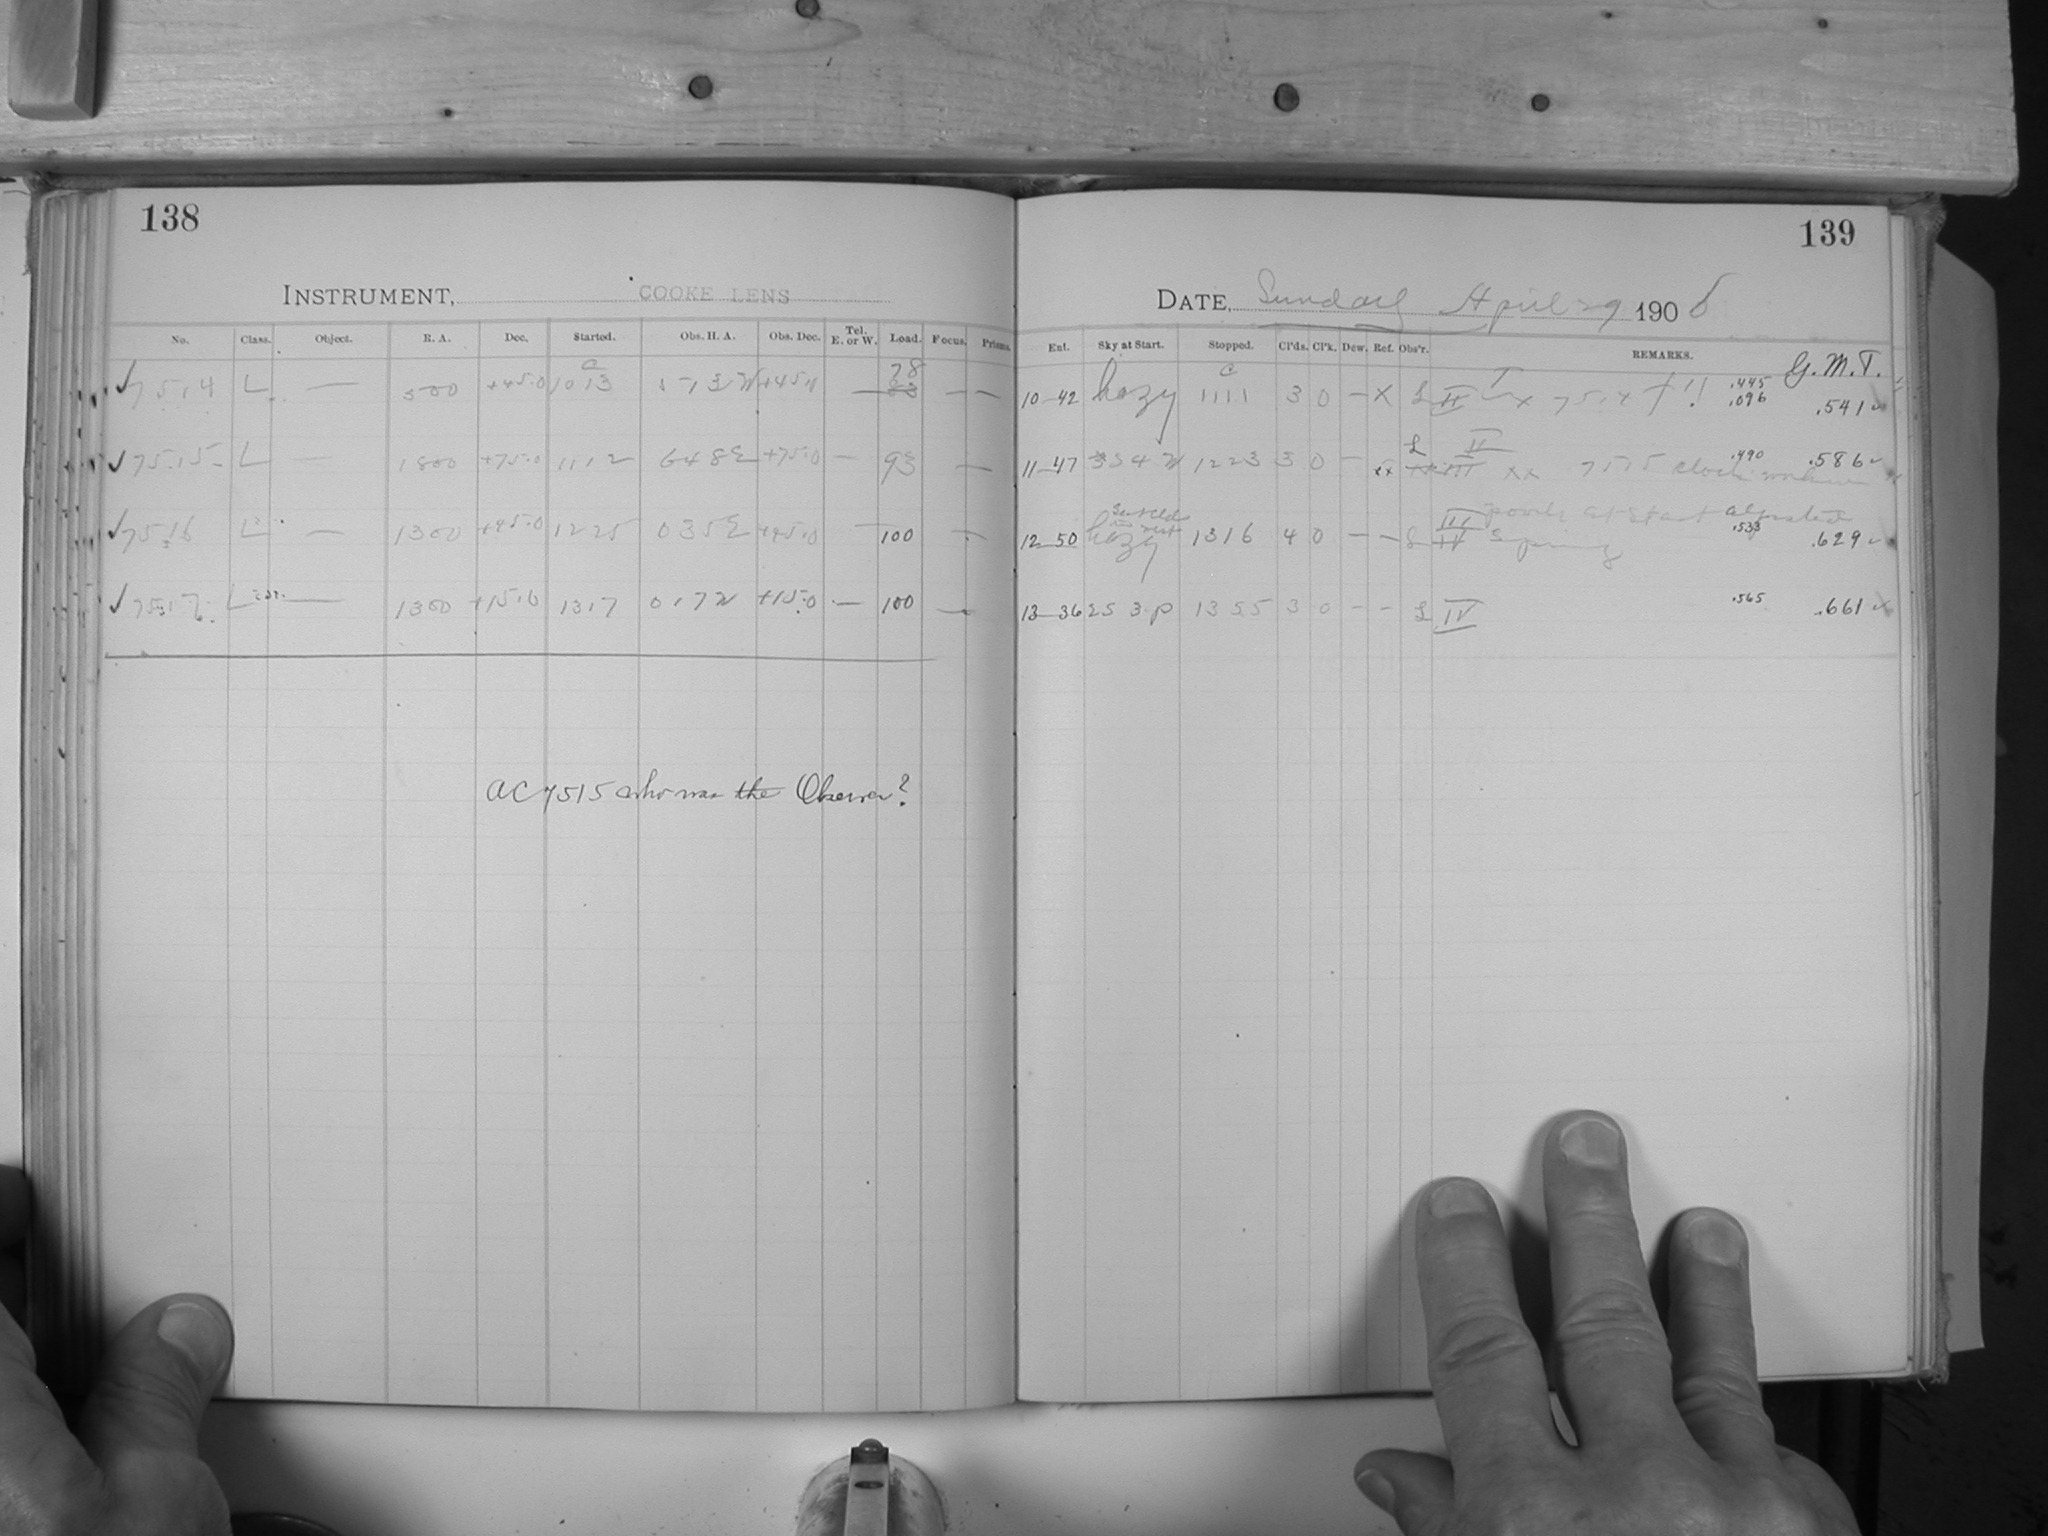 138
INSTRUMENT, COOKE LENS
No. Class. Object. R. A. Dec. Started. Obs. H. A. Obs. Dec. Tel. E. or W. Load. Focus. Prisms.
✓ 7514 L — 500 +45.0 1013 513W +45.0 — 28 — —
✓ 7515 L — 1800 +75.0 1112 648E +75.0 — 93 —
✓ 7516 L — 1300 +45.0 1225 035E +45.0 — 100 —
✓ 7517 L — 1300 +15.0 1317 017W +15.0 — 100 —
AC 7515 who was the Observer?
139
DATE, Sunday April 29 1906
Ent. Sky at Start. Stopped. Cl'ds. Cl'k. Dew. Ref. Obs'r. REMARKS. G. M. T.
10—42 hazy 1111 3 0 — X L II x 7514 !! .445 .096 .541 ✓
11—47 1223 3 0 — xx L II xx 7515 clock .490 .586 ✓
12—50 hazy 1316 4 0 — — L III at start adjusted spring .533 .629 ✓
13—36 1355 3 0 — — L IV .565 .661 ✓